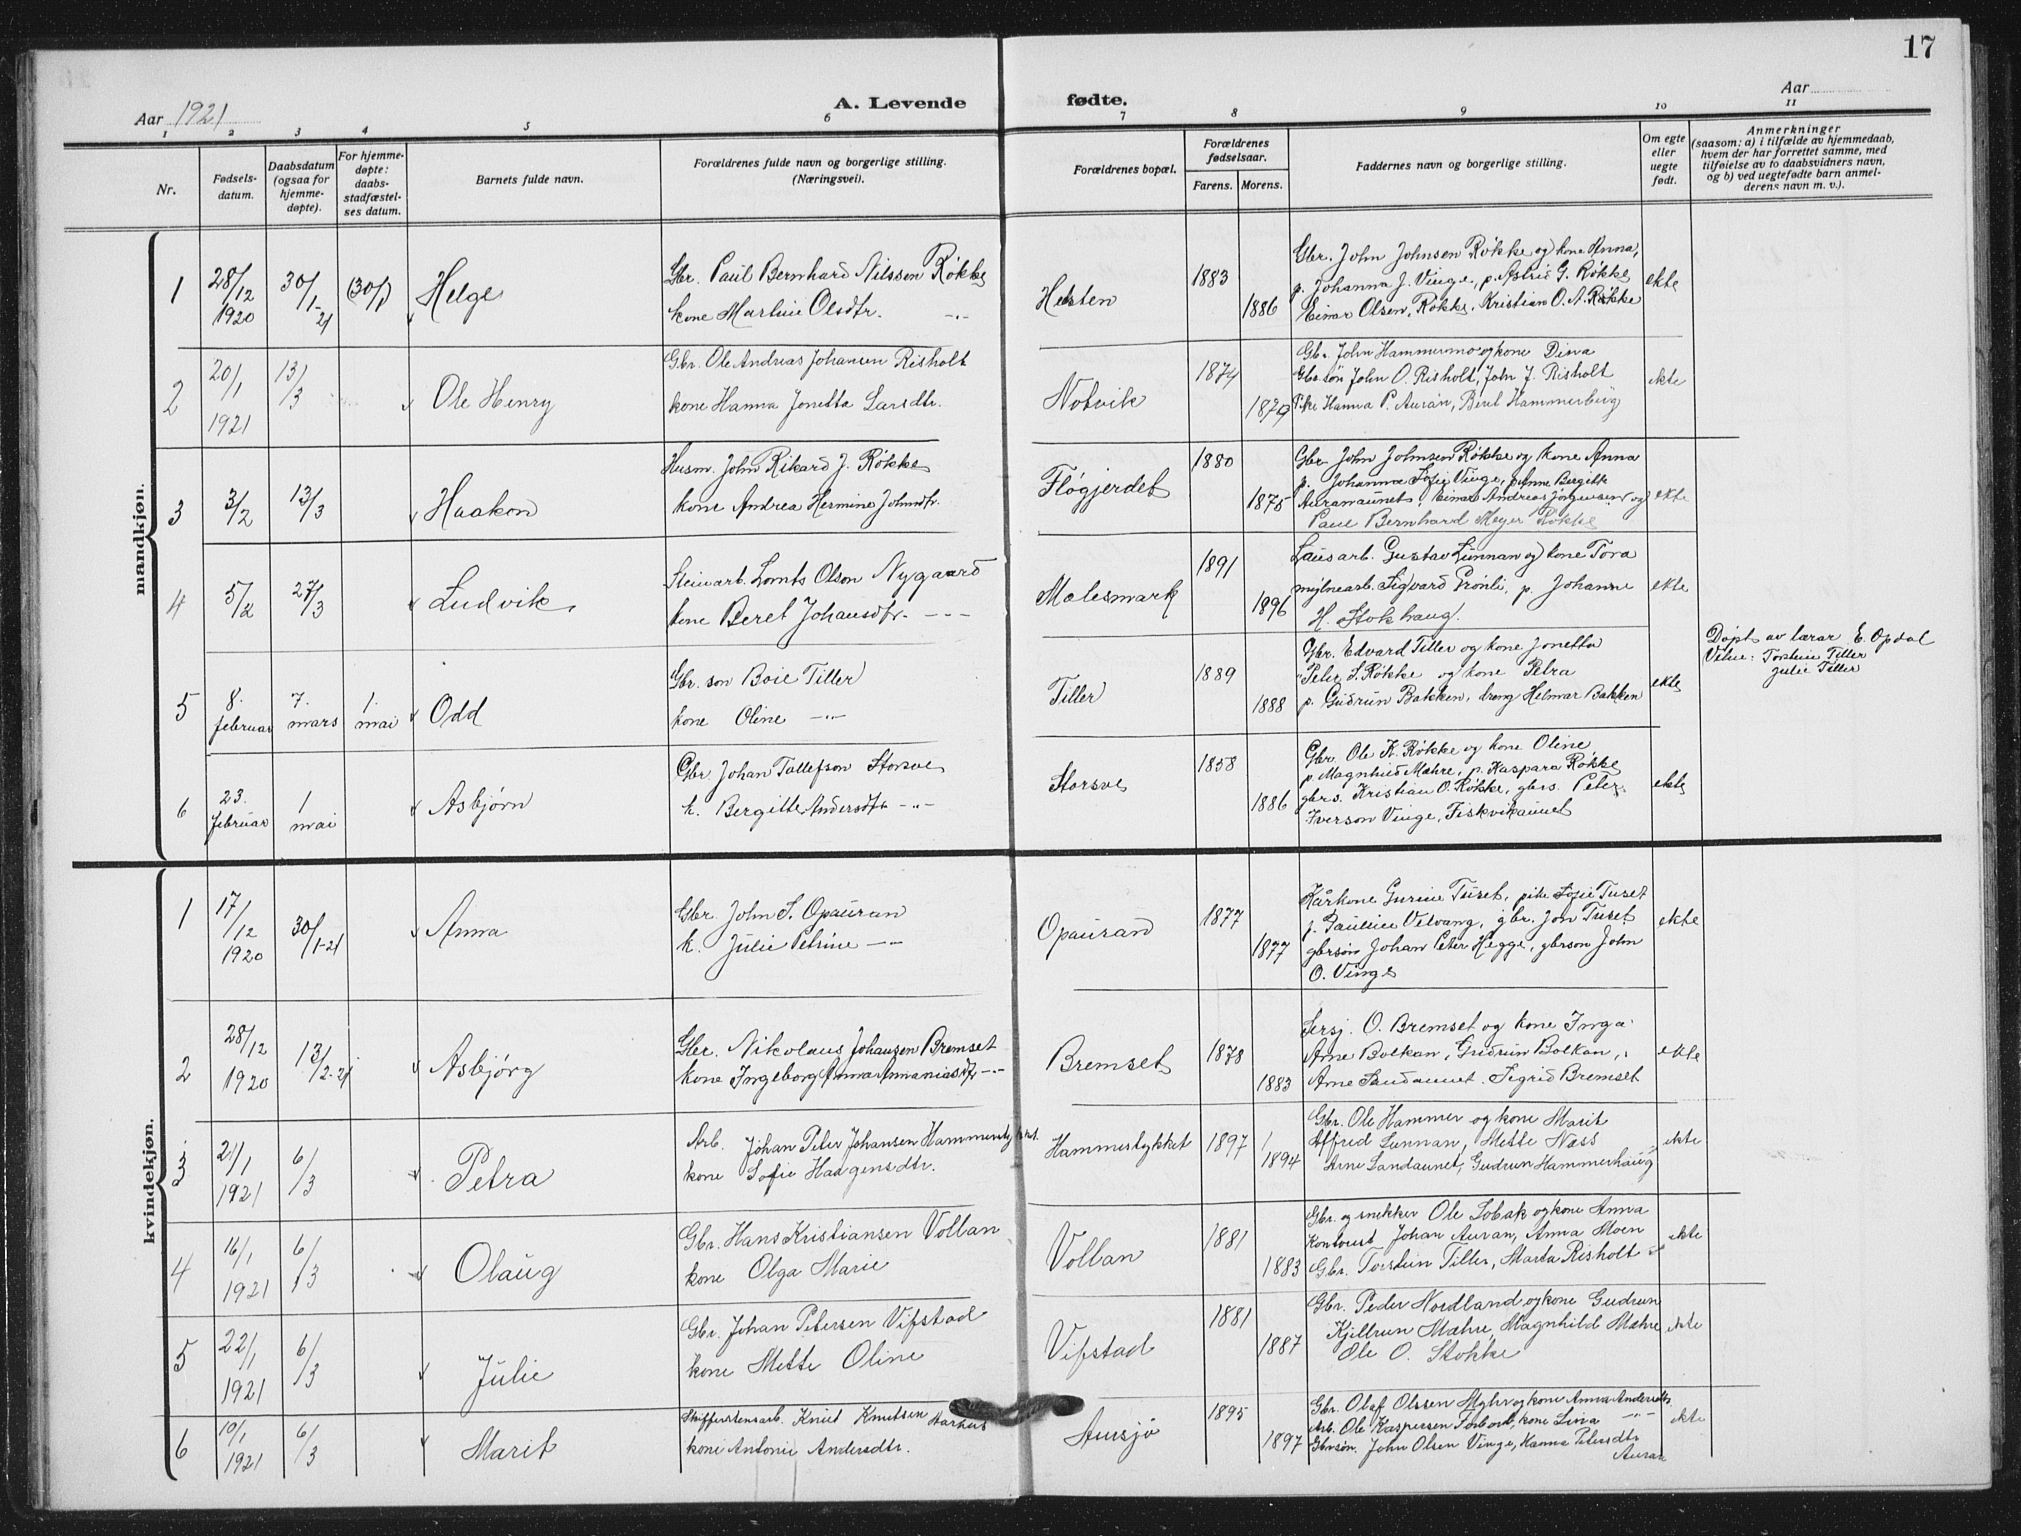 17
Aar 1921
A. Levende
fødte.
Aar
1 2 3 4 5 6 7 8 9 10 11
Nr.
Fødsels-
datum.
Daabsdatum
(ogsaa for
hjemme-
døpte).
For hjemme-
døpte:
daabs-
stadfæstel-
ses datum.
Barnets fulde navn.
Forældrenes fulde navn og borgerlige stilling.
(Næringsvei).
Forældrenes bopæl.
Forældrenes
fødselsaar.
Farens. Morens.
Faddernes navn og borgerlige stilling.
Om egte
eller
uegte
født.
Anmerkninger
(saasom: a) i tilfælde av hjemmedaab,
hvem der har forrettet samme, med
tilføielse av to daabsvidners navn,
og b) ved uegtefødte barn anmel-
derens navn m. v.).
mandkjøn.
1
28/12
1920
30/1-21
(30/1)
Helge
Gbr. Paul Bernhard Nilssen Røkke
kone Martine Olsdtr. -"-
Hesten
1883
1886
Gbr. John Johnsen Røkke og kone Anna,
p. Johanna J. Vinge, p. Astrid G. Røkke
Einar Olsen, Røkke, Kristian O. A. Røkke
ekte
2
20/1
1921
13/3
Ole Henry
Gbr. Ole Andreas Johansen Risholt
kone Hanna Jonetta Larsdtr.
Notvik
1874
1879
Gbr. John Hammermo og kone Dina
Gbr.søn John O. Risholt, John J. Risholt
Pike Hanna P. Auran, Beret Hammerberg
ekte
3
3/2
13/3
Haakon
Husm. John Rikard J. Røkke
kone Andrea Hermine Johnsdtr.
Fløgjerdet
1880
1875
Gbr. John Johnsen Røkke og kone Anna
p. Johanna Sofie Vinge, p. Anne Bergitte
Auranaunet, Einar Andreas Jørgensen og
Paul Bernhard Meyer Røkke
ekte
4
5/2
27/3
Ludvik
Steinarb. Lornts Olson Nygaard
kone Beret Johansdtr. - - -
Molesmark
1891
1896
Lausarb. Gustav Lunnan og kone Tora
mylnearb. Sigvard Grønli, p. Johanne
H. Stokhaug.
ekte
5
8.
februar
7.
mars
1.
mai
Odd
Gbr. son Boie Tiller
kone Oline -"-
Tiller
1889
1888
Gbr. Edvard Tiller og kone Jonetta
" Peter S. Røkke og kone Petra
p. Gudrun Bakken, dreng Helmar Bakken
ekte
Døpt av lærar E. Opdal
Vitne: Torstein Tiller
Julie Tiller
6
23.
februar
1
mai
Asbjørn
Gbr. Johan Tollefson Storsve
k. Bergitte Andersdtr -"-
Storsve
1858
1886
Gbr. Ole K. Røkke og kone Oline
p. Magnhild Mæhre, p. Kaspara Røkke
gbrs. Kristian O. Røkke, gbrs. Peter
Iverson Vinge, Fiskvikaunet
ekte
kvindekjøn.
1
17/12
1920
30/1-21
Anna
Gbr. John S. Opauran
k. Julie Petrine -"-
Opauran
1877
1877
Kårkone Gurine Tuset, pike Sofie Tuset
p. Pauline Velvang, gbr. Jon Tuset
gbrsøn Johan Peter Hegge, gbrson John
O. Vinge
ekte
2
28/12
1920
13/2-21
Asbjørg
Gbr. Nikolaus Johansen Bremset
kone Ingeborg Anna Annaniasdtr -"-
Bremset
1878
1883
Sersj. O. Bremset og kone Inga
Arne Bolkan, Gudrun Bolkan,
Arne Sandaunet. Sigrid Bremset
ekte
3
21/1
1921
6/3
Petra
Arb. Johan Peter Johansen Hammerstykket.
kone Sofie Haagensdtr.
Hammerstykket
1897
1894
Gbr. Ole Hammer og kone Marit
Alfred Lunnan, Mette Næss
Arne Sandaunet, Gudrun Hammerhaug
ekte
4
16/1
1921
6/3
Olaug
Gbr. Hans Kristiansen Vollan
kone Olga Marie
Vollan
1881
1883
Gbr. og snekker Ole Lobak og kone Anna
Kontorist Johan Auran, Anna Moen
Gbr. Torstein Tiller, Marta Risholt
ekte
5
22/1
1921
6/3
Julie
Gbr. Johan Petersen Vifstad
kone Mette Oline
Vifstad
1881
1887
Gbr. Peder Nordland og kone Gudrun
Kjellrun Mæhre, Magnhild Mæhre
Ole O. Stokke
ekte
6
10/1
1921
6/3
Marit
Skifferstensarb. Knut Knutsen Aarhus
kone Antonie Andersdtr.
Aunsjø
1895
1897
Gbr. Olaf Olssen Myhr og kone Anna Andersdtr.
Arb. Ole Kaspersen Forbord, kone Lina -"-
Gbrsøn. John Olsen Vinge, Hanna Petersdtr
Auran
ekte